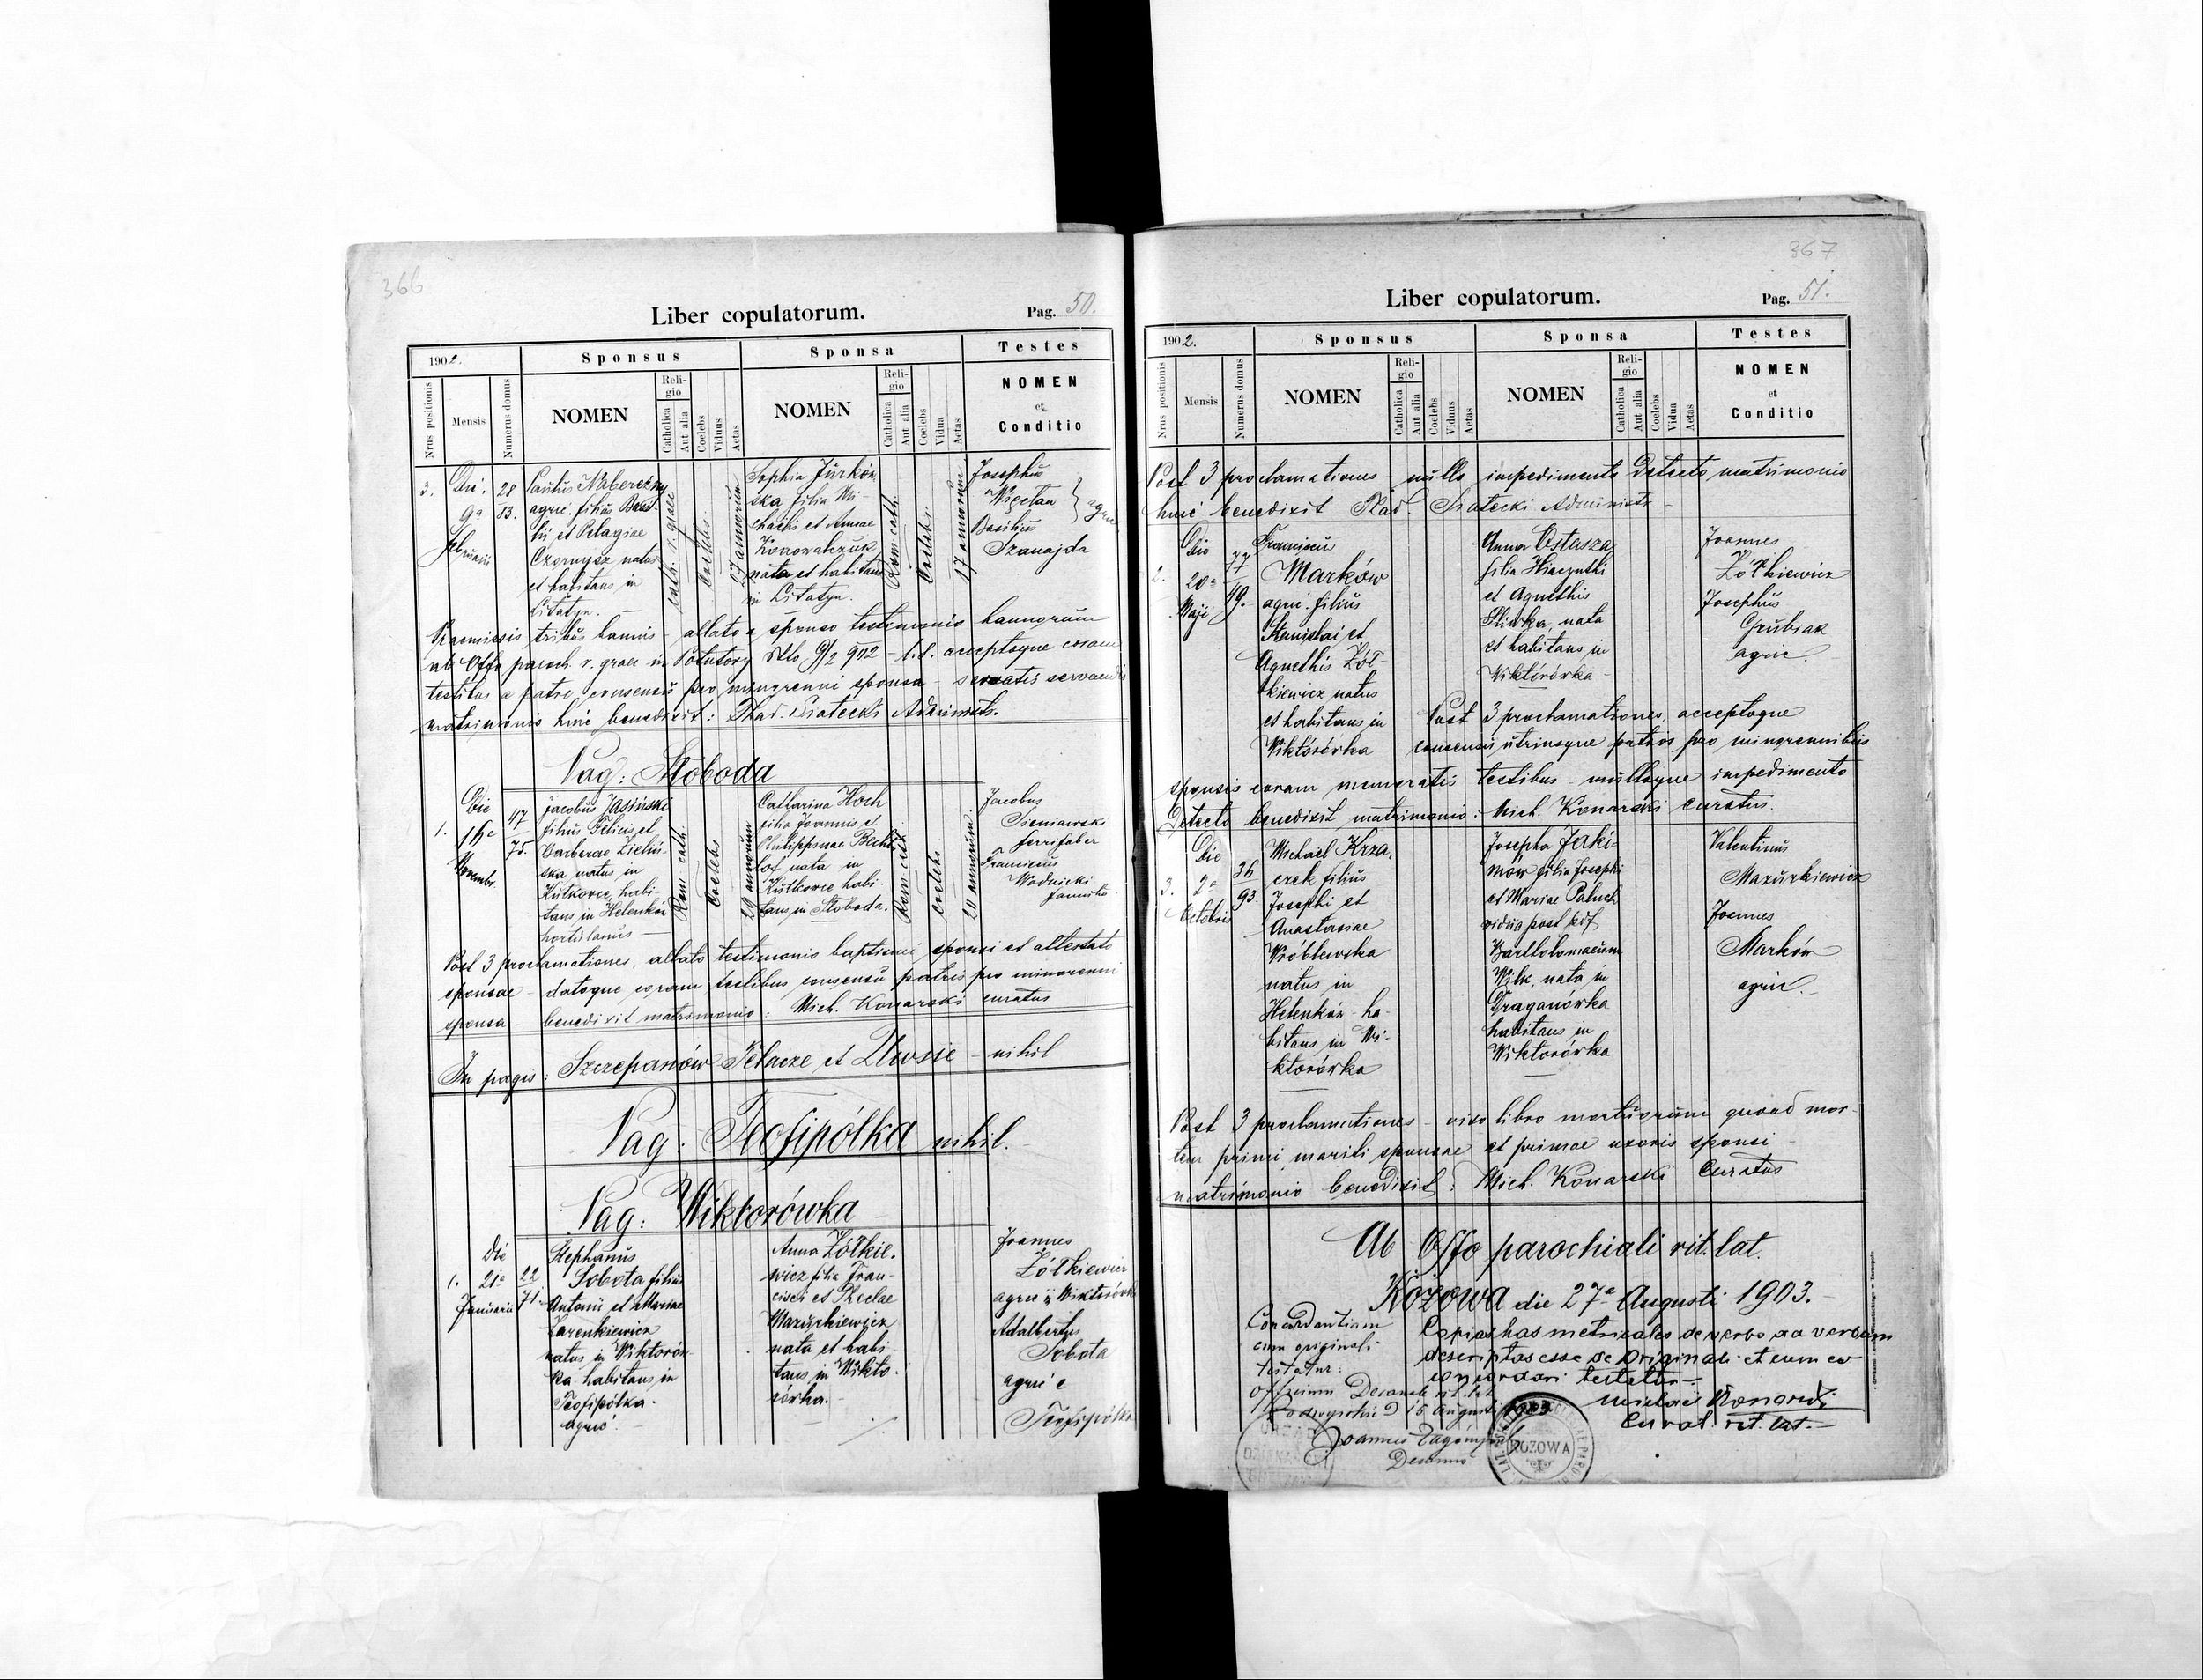 366
Liber copulatorum.
Pag. 50.
1902.
Sponsus
Sponsa
Testes
Nrus positionis
Mensis
Numerus domus
NOMEN
Religio
Catholica
Aut alia
Coelebs
Viduus
Aetas
NOMEN
Religio
Catholica
Aut alia
Coelebs
Vidua
Aetas
NOMEN
et
Conditio
3.
Die
9a
Februarii
28
83.
agric. filius Basi-
lii et Pelagiae
Czornysz natus
et habitans in
Litatyn.
cath. r. graec
Coelebs
27 annorum
Sophia Jurków
ska filia Mi-
chaëli et Annae
Konowalczuk
nata et habitans
in Litatyn.
Rom. cath.
Coelebs
17 annorum
Josephus
Basilius
Szanajda
agric
Praemissis tribus bannis - allato a sponso testimonio bannorum
ab Offo paroch. r. graec in Potutory
testibus a patre consensu pro minorenni sponsa - servatis servandis
matrimonio huic benedixit: Thad. Siatecki Administr.
Pag: Słoboda
1.
Die
16a
Novembr.
47
75.
Jacobus Jasiński
filius Felicis et
Barbarae Zieliń-
ska natus in
Kutkowce, habi-
tans in Helenków
hortulanus
Rom. cath.
Coelebs
29 annorum
Catharina Hoch
filia Joannis et
Philippinae Becht
lof nata in
Kutkowce habi-
tans in Słoboda.
Rom. cath.
Coelebs
20 annorum
Jacobus
Sieniawski
ferrifaber
Franciscus
Wodnicki
Post 3 proclamationes, allato testimonio baptismi sponsi et attestato
sponsae - datoque coram testibus consensu patris pro minorenni
sponsa - benedixit matrimonio: Mich. Konarski curatus
In pagis: Szczepanów Telacze et Uwsie - nihil
Pag. Teofipólka nihil.
Pag: Wiktorówka
1.
Die
21a
Januarii
22
71.
Stephanus
Sobota filius
Antonii et Mariae
Zarenkiewicz
natus in Wiktorów-
ka habitans in
Teofipólka.
agric.
Anna Żółkie-
wicz filia Fran-
cisci et Theclae
Mazurkiewicz
nata et habi-
tans in Wikto-
rówka.
Joannes
Żółkiewicz
agric
Adalbertus
Sobota
agric e
Teofipólka
367
Liber copulatorum.
Pag. 51.
1902.
Sponsus
Sponsa
Testes
Nrus positionis
Mensis
Numerus domus
NOMEN
Religio
Catholica
Aut alia
Coelebs
Viduus
Aetas
NOMEN
Religio
Catholica
Aut alia
Coelebs
Vidua
Aetas
NOMEN
et
Conditio
Post 3 proclamationes - nullo impedimento detecto matrimonio
huic benedixit Thad. Siatecki Administr.
2.
Die
20a
Maji
77
19.
Franciscus
Marków
agric. filius
Stanislai et
Agnethis Żół-
kiewicz natus
et habitans in
Wiktórówka
Anna Ostasza
filia Hiacynthi
et Agnethis
Śliwka, nata
et habitans in
Wiktórówka
Joannes
Żółkiewicz
Josephus
Grubiak
agric.
Post 3 proclamationes, acceptoque
consensu utriusque patris pro minorennibus
sponsis coram memoratis testibus - nulloque impedimento
detecto benedixit matrimonio: Mich. Konarski curatus.
3.
Die
2a
Octobris
36
93.
Michael Krza-
czek filius
Josephi et
Anastasiae
Wróblewska
natus in
Helenków ha-
bitans in Wi-
ktorówka
Josepha Jaki-
mów filia Josephi
et Mariae Paluch
vidua post def.
Bartholomaeum
Wilk, nata in
Draganówka
habitans in
Wiktorówka
Valentinus
Mazurkiewicz
Joannes
Marków
agric.
Post 3 proclamationes - viso libro mortuorum quoad mor-
tem primi mariti sponsae et primae uxoris sponsi -
matrimonio benedixit: Mich. Konarski Curatus
Ab Offo parochiali rit. lat.
Kozowa die 27a Augusti 1903.
Concordantiam
cum originali
testatur:
Officium Decanale rit. lat
Joannes
Decanus
Copias has metricales de verbo ad verbum
descriptas esse de Originali et cum eo
concordari testatur
Michaël Konarski
Curat. rit. lat.
KOZOWA